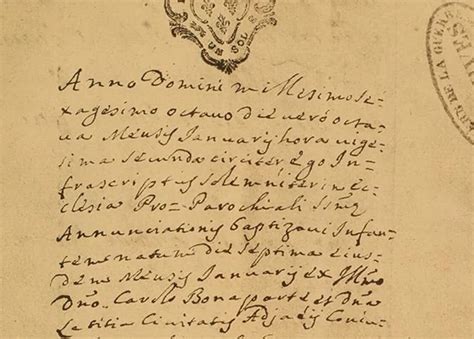 UN SOL
DE LA GUERRE
Anno Domini millesimo se-
xagesimo octavo die verò octa-
va Mensis Januarij hora vige-
sima secunda circiter ego In-
frascriptus solemniter in ec-
clesia Pro-Parochiali
Annunciationis baptizavi Infan-
tem natum die septima eius-
dem Mensis Januarij ex Illmo
Dno. Carolo Bonaparte et Dna
Letitia Civitatis Adjacij Coniu-